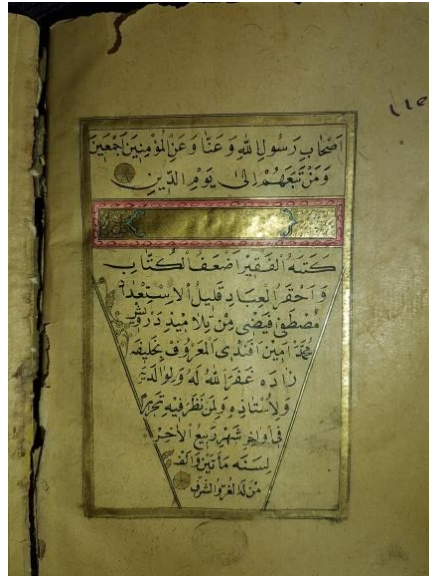 اَصْحَابِ رَسُولِ اللهِ وَعَنَّا وَعَنِ المُؤْمِنِينَ اَجْمَعِينَ
وَمَنْ تَبِعَهُمْ اِلىٰ يَوْمِ الدِّينِ
كَتَبَهُ الْفَقِيرُ اَضْعَفُ الْكُتَّابِ
وَاَحْقَرُ الْعِبَادِ قَلِيلُ الْاِسْتِعْدَادِ
مُصْطَفٰى فَيْضِى مِنْ تَلَامِيذِ دَرْوِيشْ
مُحَمَّد اَمِين اَفَنْدِى الْمَعْرُوفِ بِخَلِيفَه
زَادَه غَفَرَ اللهُ لَهُ وَلِوَالِدَيْهِ
وَلِاُسْتَاذِهِ وَلِمَنْ نَظَرَ فِيهِ تَحْرِيرًا
فِى اَوَاخِرِ شَهْرِ رَبِيعُ الْاٰخِرْ
لِسَنَه مِأَتَيْنِ وَاَلْفْ
مَنْ لَهُ الْعِزُّ وَالشَّرَفُ
١١٥